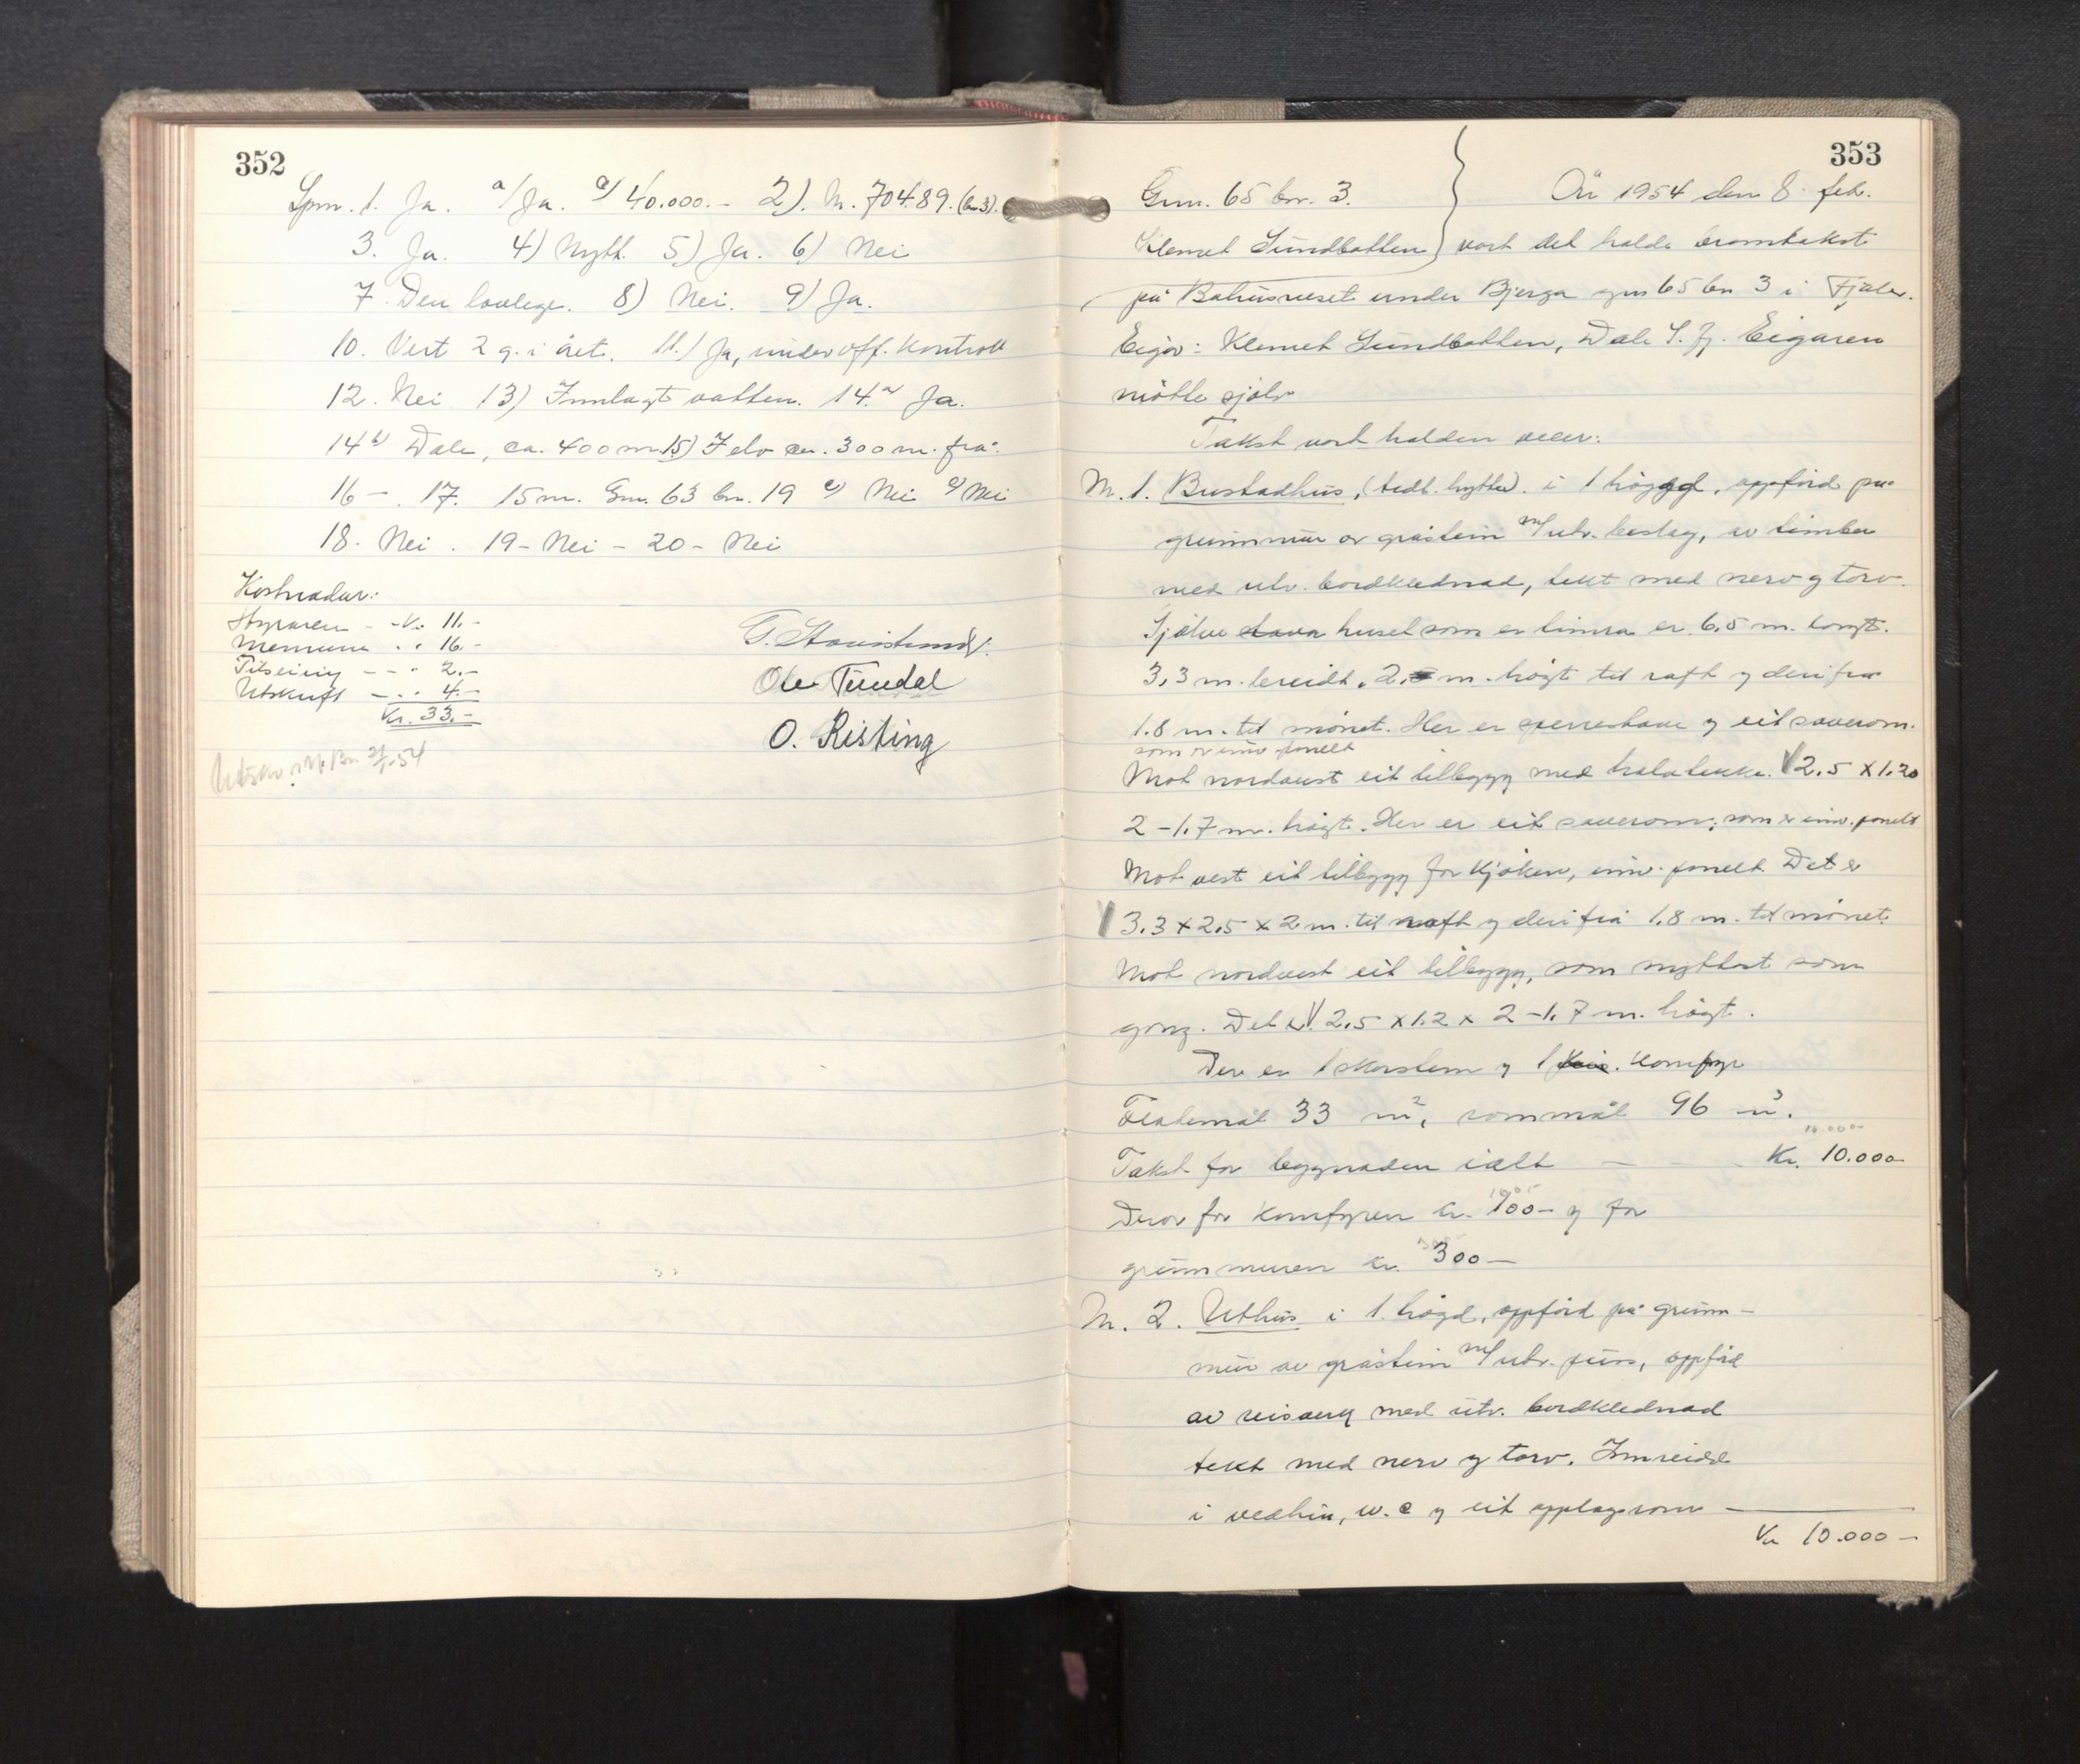 352
Spm. 1. Ja. a/ Ja. c/ 40.000.- 2). Nr. 70489. (bn 3).
3. Ja. 4) Nytt. 5) Ja. 6) Nei
7. Den lovlege. 8) Nei. 9) Ja.
10. Vert 2 g. i året. 11.) Ja, under off. kontroll
12. Nei 13) Innlagt vatten. 14.a Ja.
14 b) Dale, ca. 400 m. 15) I elv ca. 300 m. frå.
16 – . 17. 15 m. Gnr. 63 bnr. 19 Nei Nei
18. Nei . 19 – Nei – 20 – Nei
Kostnadar:
Styraren - - Kr. 11.-
Mennene " " 16.-
Tilseiing - - " 2.-
Utskrift - - " 4.-
Kr. 33.-
Ole Tundal
O. Risting
353
Gnr. 65 bnr. 3.
Klemet Sundbotten
År 1954 den 8. feb.
vart det halde branntakst
på under Bjerga gnr 65 bn 3 i Fjaler.
Eigar: Klemet Sundbotten, Dale S. Fj. Eigaren
møtte sjølv
Takst vart halden over:
Nr. 1. Bustadhus, (tedl. hytte). i 1 høggd, oppførd på
grunnmur av gråstein m/utv. beslag, av timber
med utv. bordklednad, tekt med nerv og torv.
Sjølve stova huset som er timra er 6,5 m. langt.
3,3 m. breidt. 2, m. høgt til raft og derifrå
1.8 m. til mønet. Her er sperrestove og eit soverom.
som er innv. panelt
Mot nordaust eit tilbygg med halvtekke. 2.5 x 1.20
2 – 1.7 m. høgt. Her er eit soverom; som er innv. panelt
Mot vest eit tilbygg for kjøken, innv. panelt Det er
3.3 x 2.5 x 2 m. til raft og derifrå 1.8 m. til mønet.
Mot nordvest eit tilbygg, som nyttast som
gang. Det er 2.5 x 1.2 x 2 – 1.7 m. høgt.
Der er 1 skorstein og 1 komfyr
Flatemål 33 m², rommål 96 m³.
Takst for bygnaden ialt - - - Kr. 10.000
Derav for komfyren kr. 100 – og for
grunnmuren kr. 300 –
Nr. 2. Uthus i 1. høgd, oppførd på grunn –
mur av gråstein m/utv. puss, oppførd
av reisverk med utv. bordklednad
tekt med nerv og torv. Innreidd
i vedhus, w.c og eit opplagsrom
Kr 10.000 –